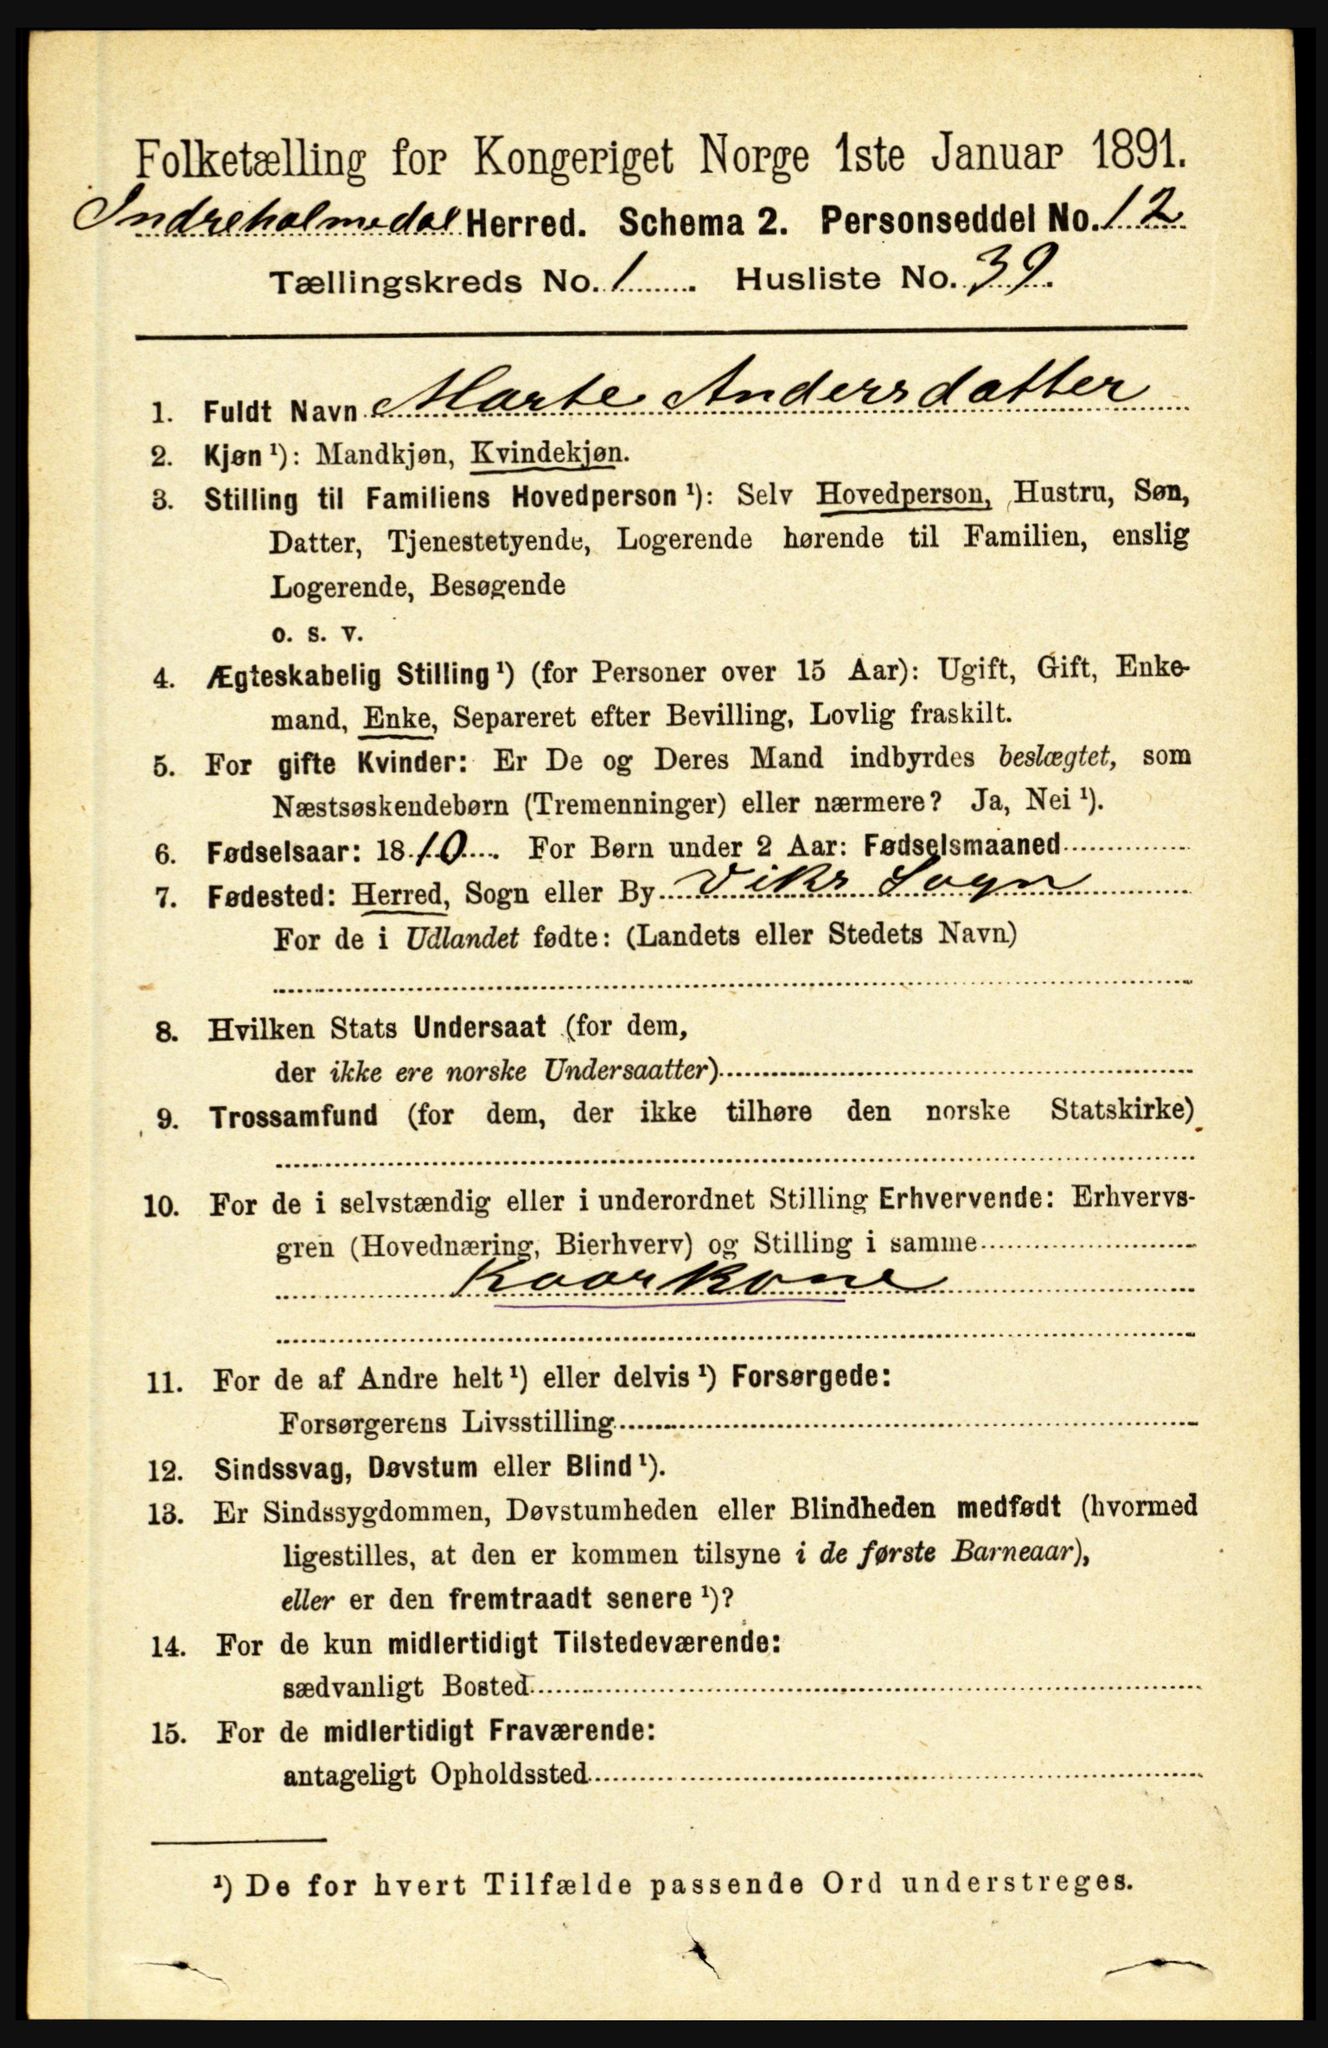 Folketælling for Kongeriget Norge 1ste Januar 1891.
Indreholmedal Herred. Schema 2. Personseddel No. 12
Tællingskreds No. 1. Husliste No. 39.
1. Fuldt Navn Marte Andersdatter
2. Kjøn ¹): Mandkjøn, Kvindekjøn.
3. Stilling til Familiens Hovedperson ¹): Selv Hovedperson, Hustru, Søn,
Datter, Tjenestetyende, Logerende hørende til Familien, enslig
Logerende, Besøgende
o. s. v.
4. Ægteskabelig Stilling ¹) (for Personer over 15 Aar): Ugift, Gift, Enke-
mand, Enke, Separeret efter Bevilling, Lovlig fraskilt.
5. For gifte Kvinder: Er De og Deres Mand indbyrdes beslægtet, som
Næstsøskendebørn (Tremenninger) eller nærmere? Ja, Nei ¹).
6. Fødselsaar: 1810. For Børn under 2 Aar: Fødselsmaaned
7. Fødested: Herred, Sogn eller By Viks Sogn
For de i Udlandet fødte: (Landets eller Stedets Navn)
8. Hvilken Stats Undersaat (for dem,
der ikke ere norske Undersaatter)
9. Trossamfund (for dem, der ikke tilhøre den norske Statskirke)
10. For de i selvstændig eller i underordnet Stilling Erhvervende: Erhvervs-
gren (Hovednæring, Bierhverv) og Stilling i samme
Kaarkone
11. For de af Andre helt ¹) eller delvis ¹) Forsørgede:
Forsørgerens Livsstilling
12. Sindssvag, Døvstum eller Blind ¹).
13. Er Sindssygdommen, Døvstumheden eller Blindheden medfødt (hvormed
ligestilles, at den er kommen tilsyne i de første Barneaar),
eller er den fremtraadt senere ¹)?
14. For de kun midlertidigt Tilstedeværende:
sædvanligt Bosted
15. For de midlertidigt Fraværende:
antageligt Opholdssted
¹) De for hvert Tilfælde passende Ord understreges.